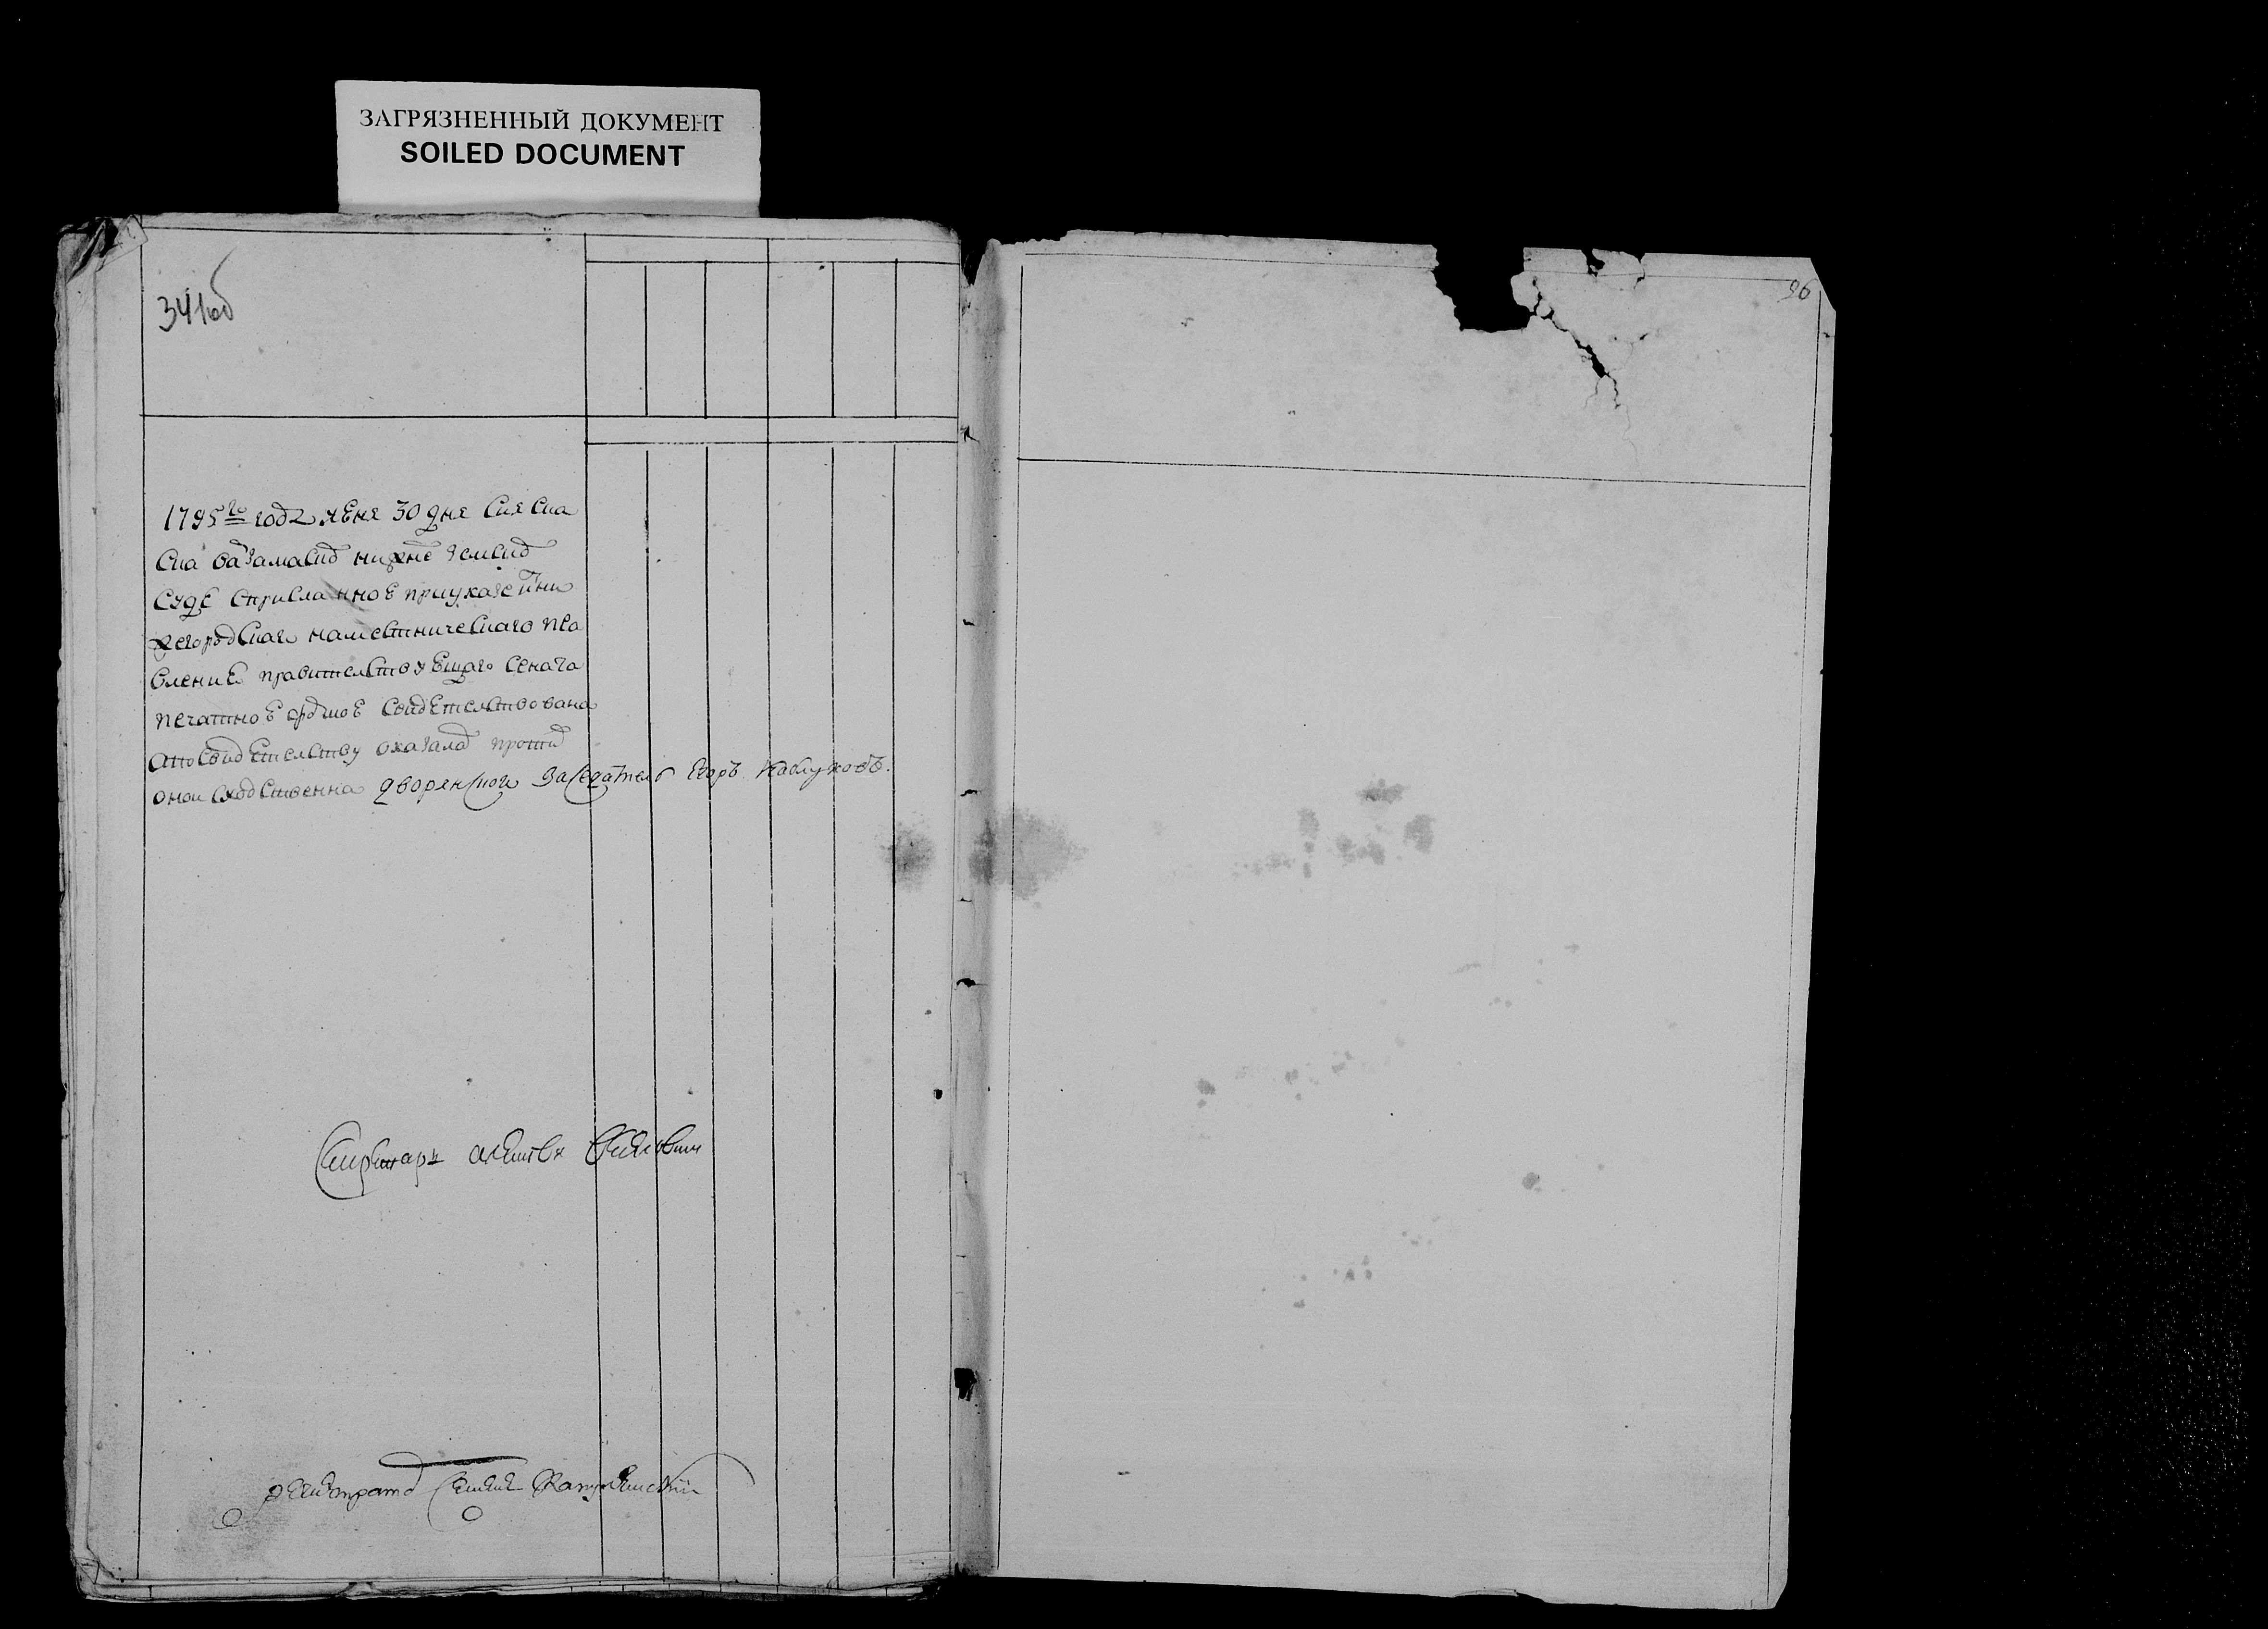 ЗАГРЯЗНЕННЫЙ ДОКУМЕНТ
SOILED DOCUMENT
341об
96
1795го года июня 30 дня сия ска
ска варзамаском нижнем земском
суде сприсланною приуказе изни
жегородскаго наместническаго пра
вления правительствующаго сената
печатною формою свидетельствована
апосвидетельству оказалась против
оной сходственна дворянской заседатель Егоръ Каблуковъ.
Секретарь алексей
регистратор